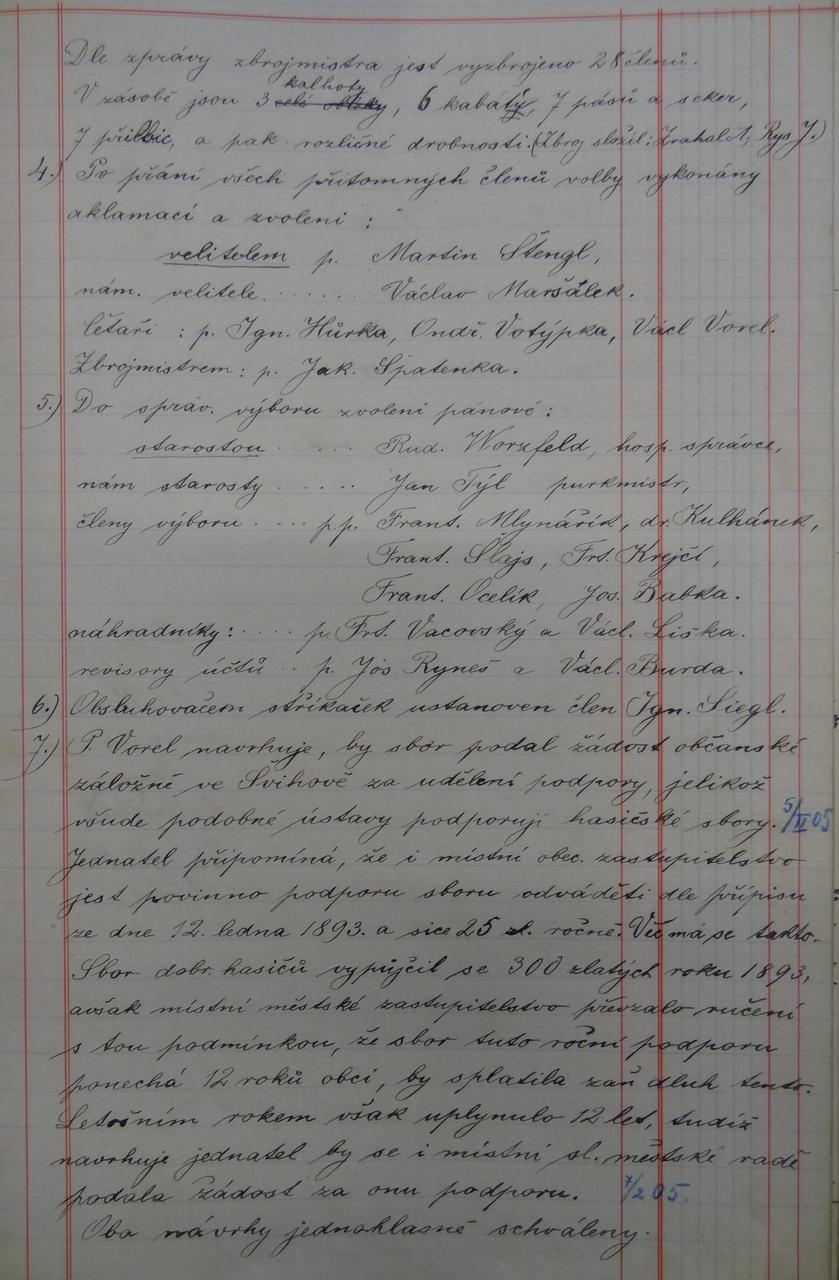 Dle zprávy zbrojmistra jest vyzbrojeno 28 členů.
kalhoty
V zásobě jsou 3 celé obleky, 6 kabátů, 7 pásů a seker,
7 přilbic, a pak rozličné drobnosti. (Zbroj složil: Zrahal A, Rys J.)
4.) Po přání všech přítomných členů volby vykonány
aklamací a zvoleni :
velitelem p. Martin Štengl,
nám. velitele. . . . . . Václav Maršálek.
četaři : p. Ign. Hůrka, Ondř. Votýpka, Václ Vorel.
Zbrojmistrem : p. Jak. Špatenka.
5.) Do správ. výboru zvoleni pánové :
starostou . . . . Rud. Worzfeld, hosp. správce,
nám starosty . . . . . Jan Týl purkmistr,
členy výboru . . . . pp. Frant. Mlynářík, dr. Kulhánek,
Frant. Šlajs, Frt. Krejčí,
Frant. Ocelík, Jos. Babka.
náhradníky : . . . . p. Frt. Vacovský a Václ. Liška.
revisory účtů . . p. Jos Ryneš a Václ. Burda.
6.) Obsluhovačem stříkaček ustanoven člen Ign. Siegl.
7.) P. Vorel navrhuje, by sbor podal žádost občanské
záložně ve Švihově za udělení podpory, jelikož
všude podobné ústavy podporují hasičské sbory. 5/II 05
Jednatel připomíná, že i místní obec. zastupitelstvo
jest povinno podporu sboru odváděti dle přípisu
ze dne 12. ledna 1893. a sice 25 zl. ročně. Věc má se takto.
Sbor dobr. hasičů vypůjčil se 300 zlatých roku 1893,
avšak místní městské zastupitelstvo převzalo ručení
s tou podmínkou, že sbor tuto roční podporu
ponechá 12 roků obci, by splatila zaň dluh tento.
Letošním rokem však uplynulo 12 let, tudíž
navrhuje jednatel by se i místní sl. městské radě
podala žádost za onu podporu. 7/2 05.
Oba návrhy jednohlasně schváleny.